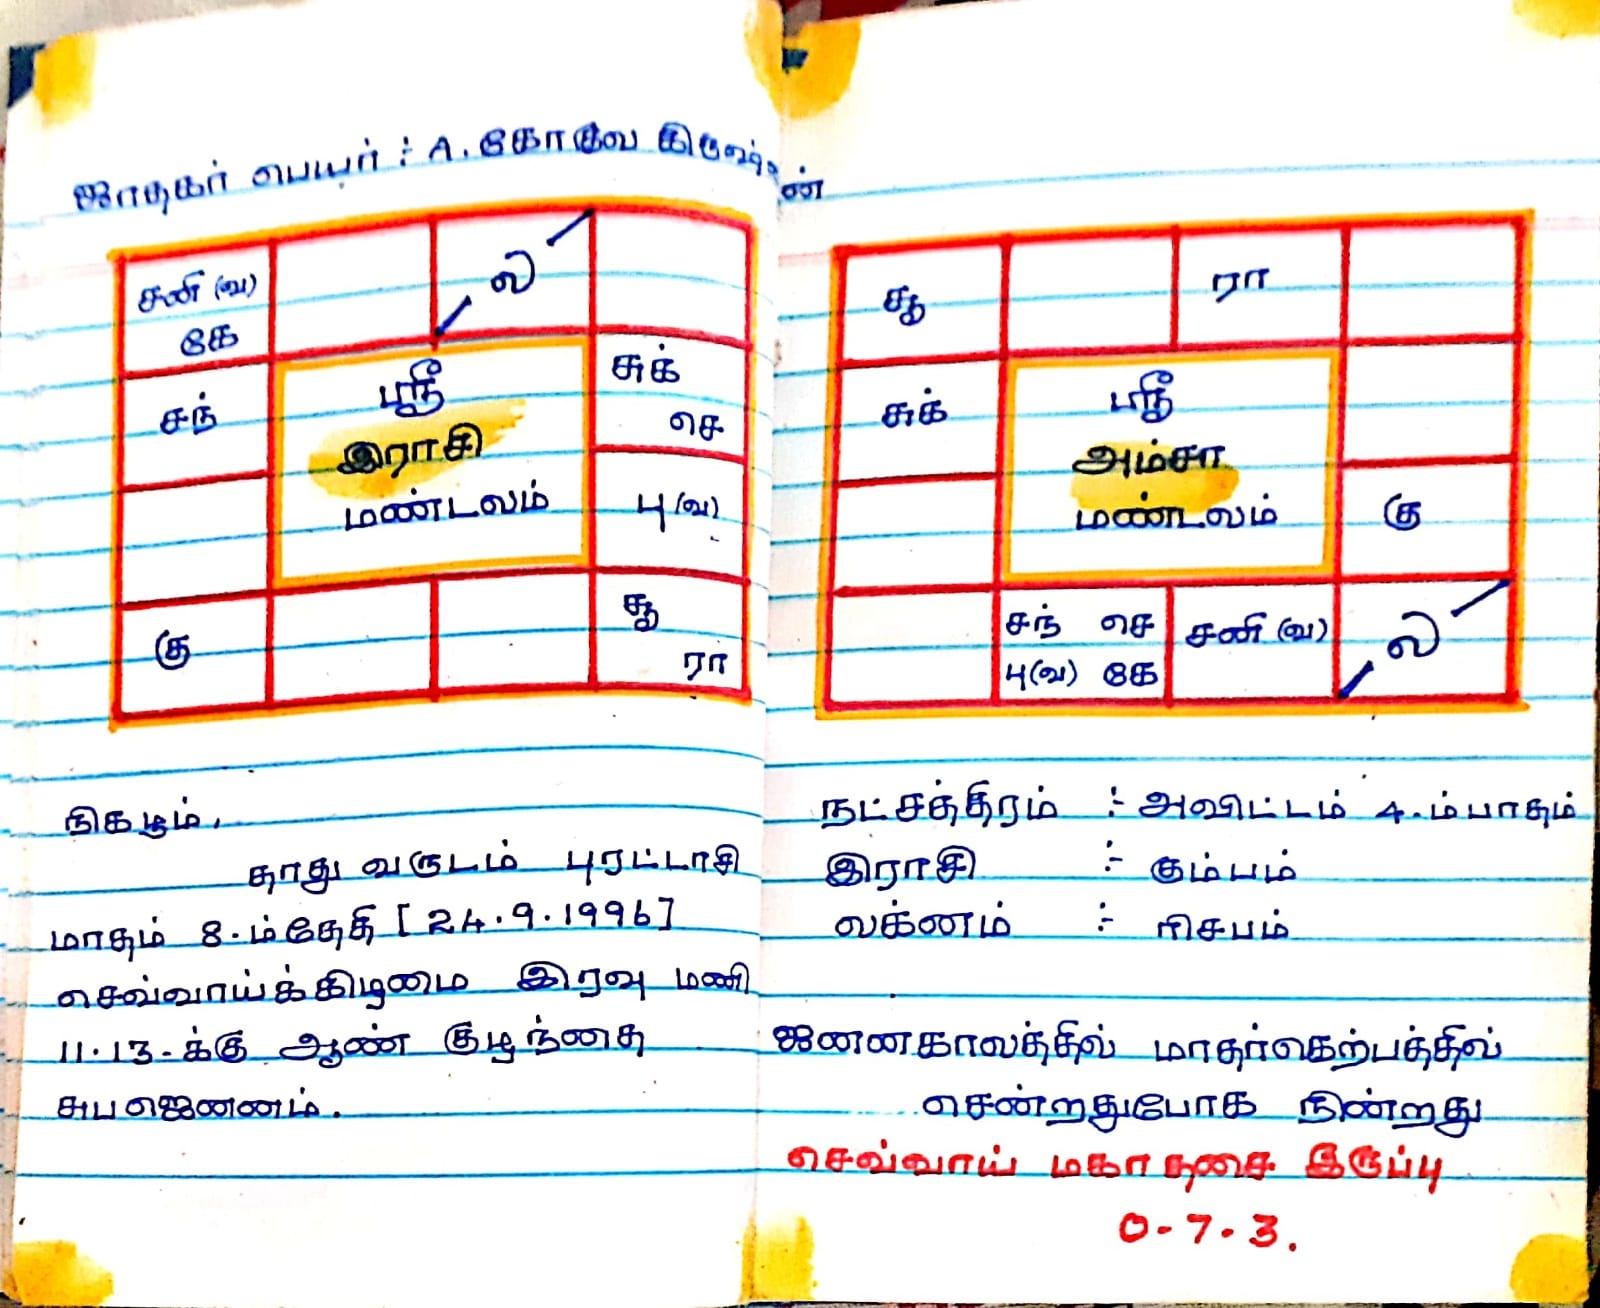 ஜாதகர் பெயர் :- A. கோகுல கிருஷ்ணன்
சனி (வ)
கே
ல
சந்
ஸ்ரீ
இராசி
மண்டலம்
சுக்
செ
பு (வ)
கு
சூ
ரா
நிகழும்,
தாது வருடம் புரட்டாசி
மாதம் 8.ம்தேதி [24.9.1996]
செவ்வாய்க்கிழமை இரவு மணி
11.13-க்கு ஆண் குழந்தை
சுபஜெனனம்.
சூ
ரா
சுக்
ஸ்ரீ
அம்சா
மண்டலம்
கு
சந் செ
பு(வ) கே
சனி (வ)
ல
நட்சத்திரம் :- அவிட்டம் 4.ம்பாதம்
இராசி :- கும்பம்
லக்னம் :- ரிசபம்
ஜனனகாலத்தில் மாதர்கெற்பத்தில்
சென்றதுபோக நின்றது
செவ்வாய் மகாதசை இருப்பு
0-7-3.